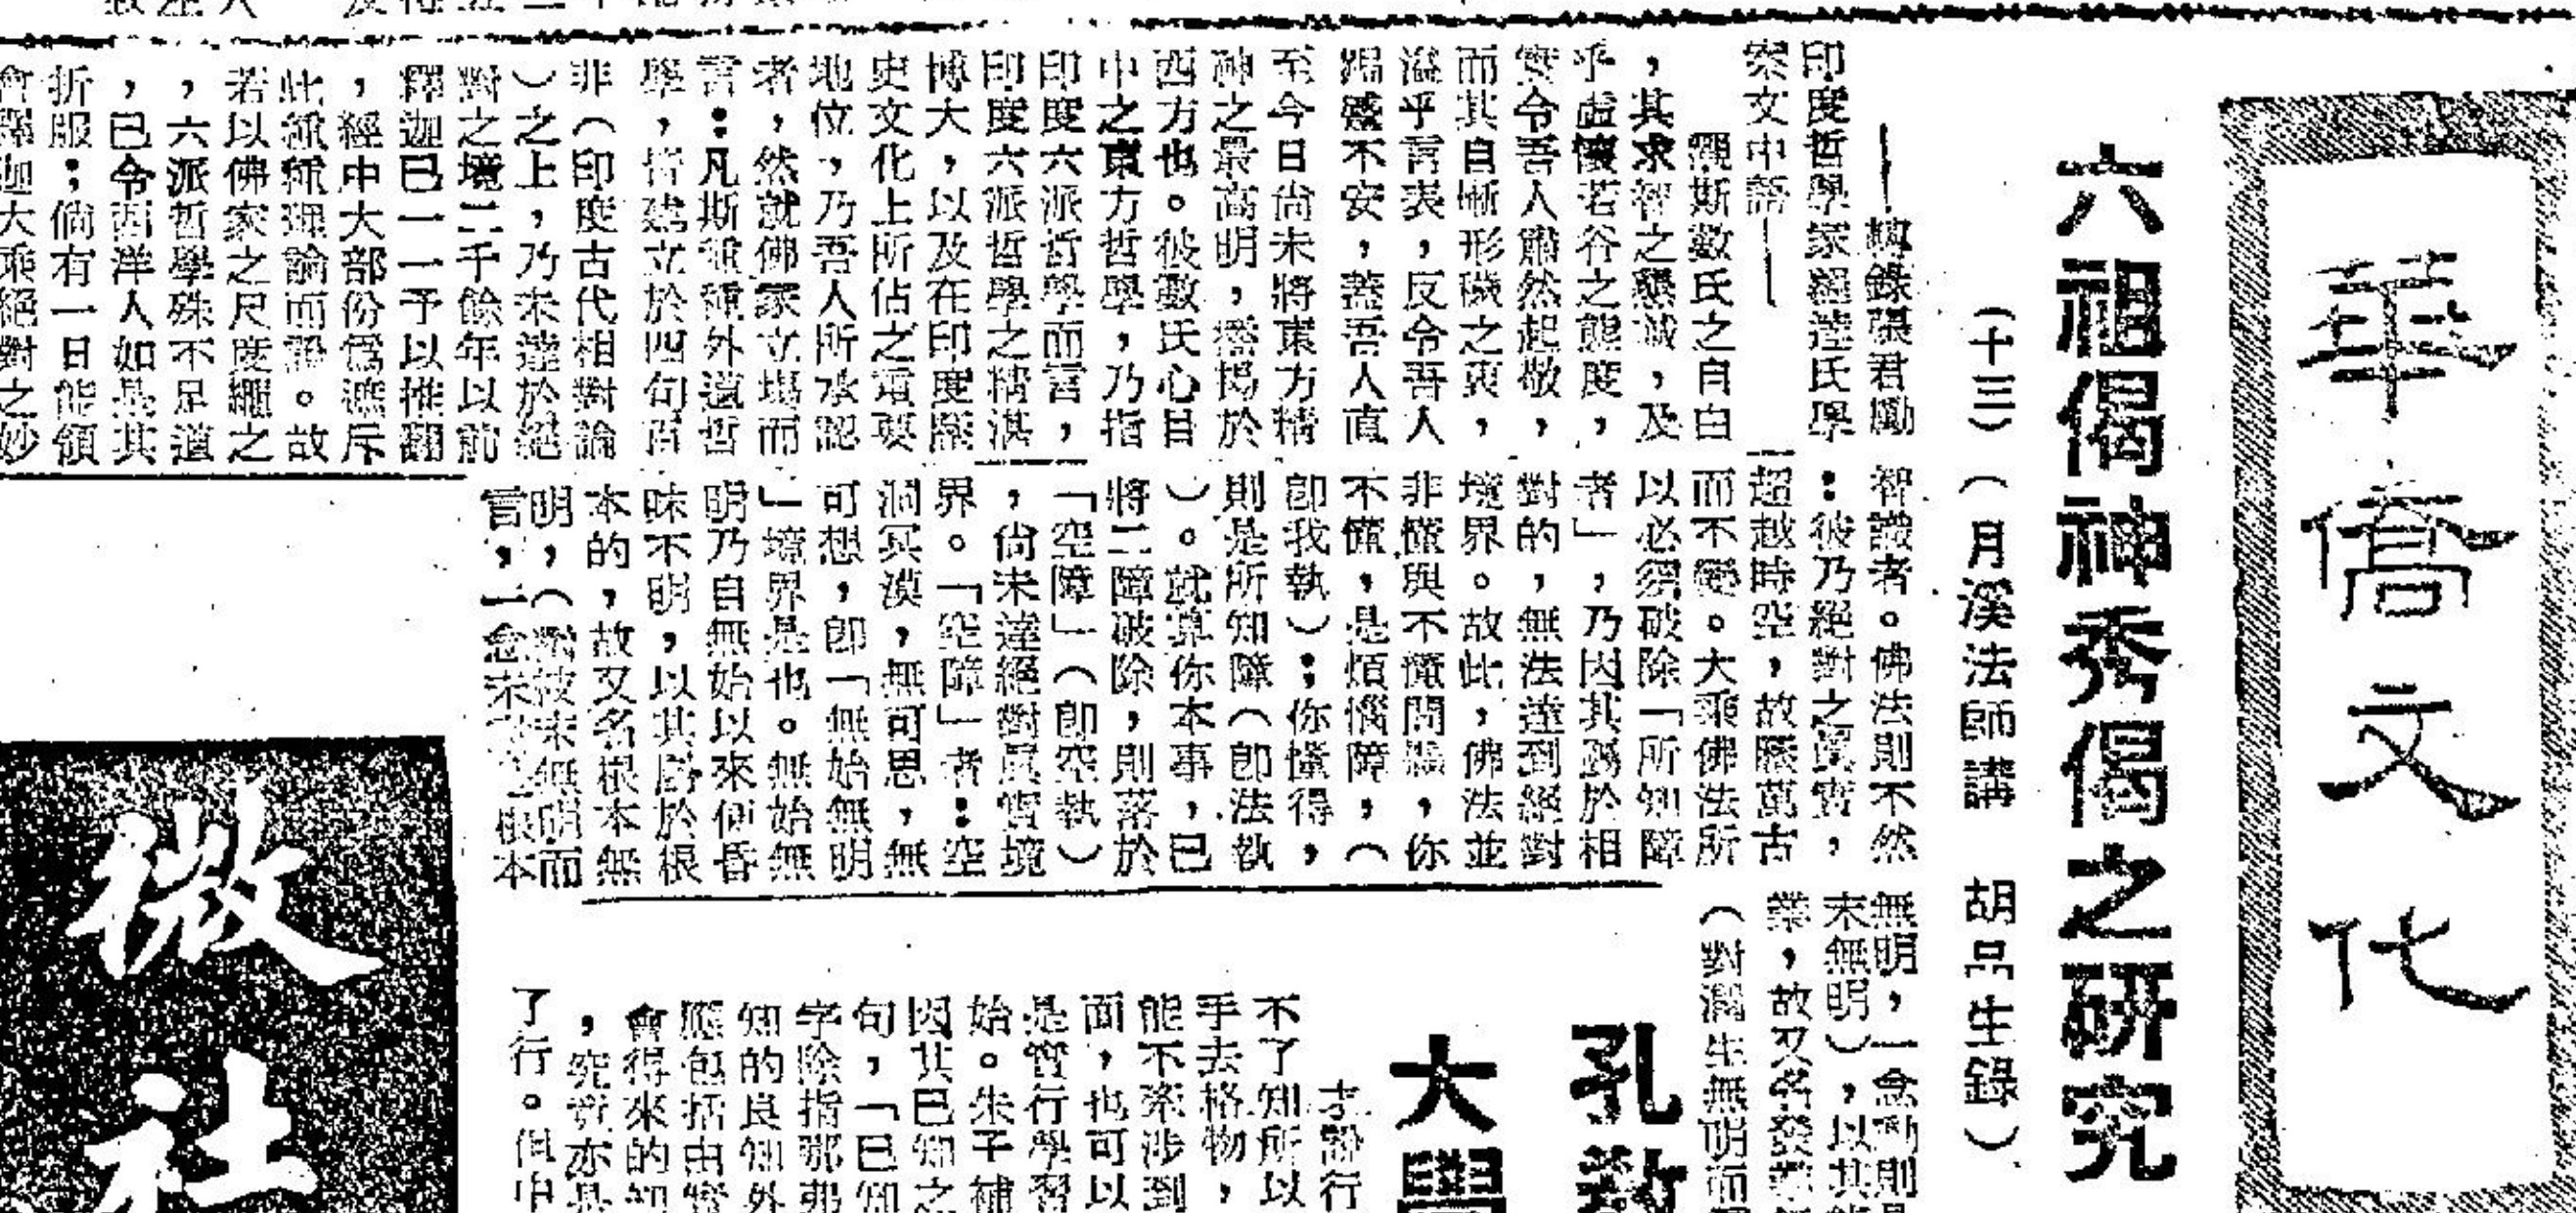 華僑文化
六祖偈神秀偈之研究
(十三)(月溪法師講 胡品生錄)
——轉錄張君勱
印度哲學家羅達氏學
案文中語——
觀斯數氏之自白
，其求智之懇誠，及
乎虛懷若谷之態度，
實令吾人肅然起敬，
而其自慚形穢之衷，
溢乎言表，反令吾人
跼蹙不安，蓋吾人直
至今日尚未將東方精
神之最高明，播揚於
西方也。彼數氏心目
中之東方哲學，乃指
印度六派哲學而言，
印度六派哲學之精湛
博大，以及在印度歷
史文化上所佔之重要
地位，乃吾人所承認
者，然就佛家立場而
言：凡斯種種外道哲
學，皆建立於四句百
非(印度古代相對論
)之上，乃未達於絕
對之境二千餘年以前
釋迦已一一予以推翻
，經中大部份爲遮斥
此種種理論而說。故
若以佛家之尺度繩之
，六派哲學殊不足道
，已令西洋人如是其
折服；倘有一日能領
會釋迦大乘絕對之妙
智識者。佛法則不然
：彼乃絕對之眞實，
超越時空，故歷萬古
而不變。大乘佛法所
以必須破除「所知障
者」，乃因其屬於相
對的，無法達到絕對
境界。故此，佛法並
非懂與不懂問題，你
不懂，是煩惱障，(
卽我執)；你懂得，
則是所知障(卽法執
)。就算你本事，已
將二障破除，則落於
「空障」(卽空執)
，尙未達絕對眞實境
界。「空障」者：空
洞冥漠，無可思，無
可想，卽「無始無明
」境界是也。無始無
明乃自無始以來便昏
昧不明，以其居於根
本的，故又名根本無
明，(對枝末無明而
言，一念末 根本
無明，一念動則
末無明)，以其
業，故又名發業
(對潤生無明而
孔教
大學
才說行
不了知所以
手去格物，
能不牽涉到
面，也可以
是實行學習
始。朱子補
因其已知之
句，「已知
字除指那
知的良知外
應包括由實
會得來的知
，究竟亦是
了行。但中
徵
社